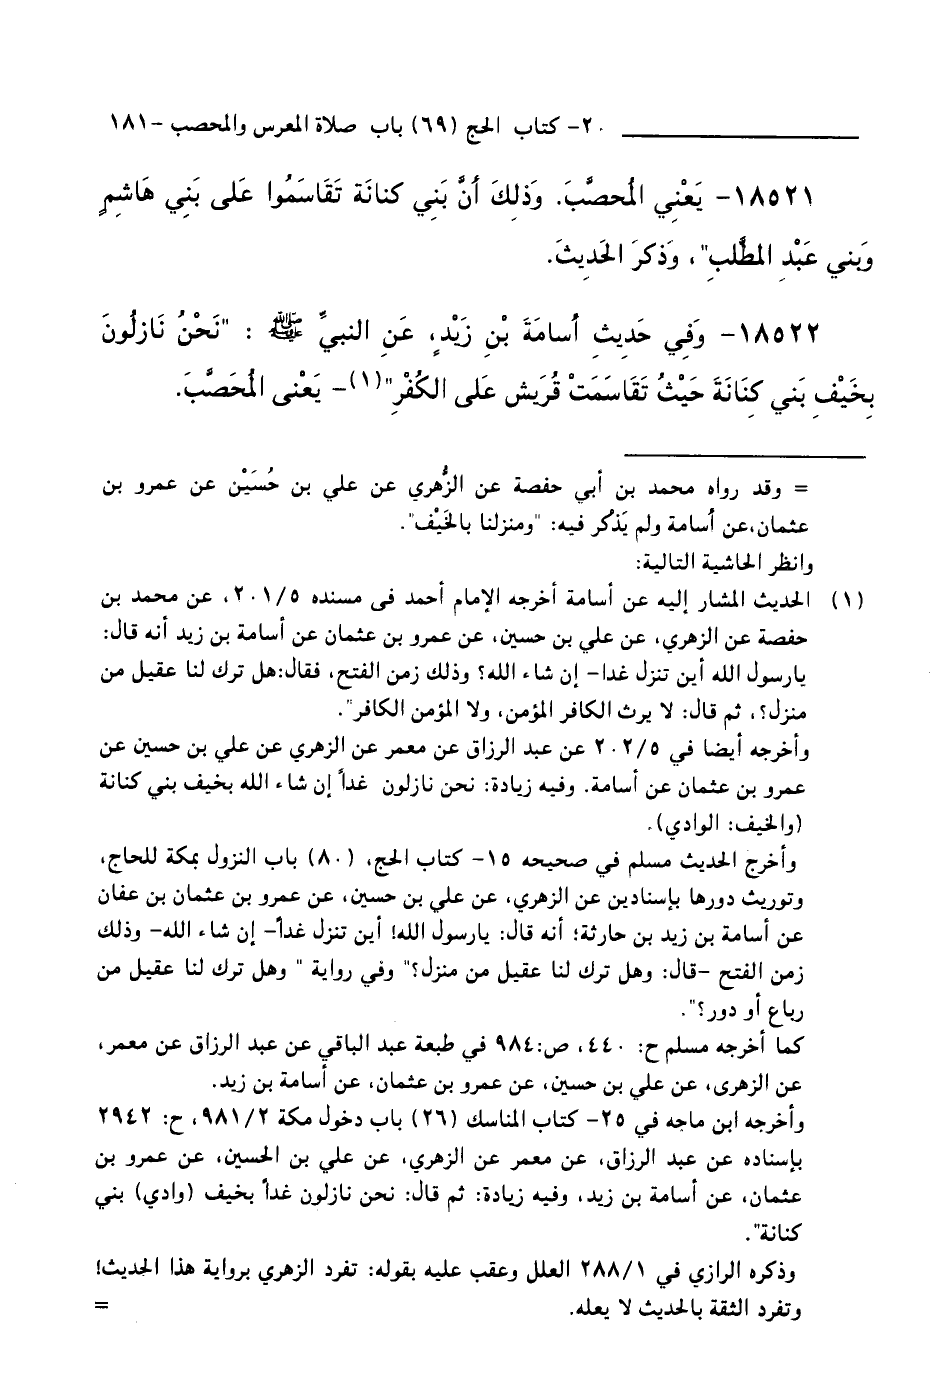 ٢٠- كتاب الحج (٦٩) باب صلاة المعرس والمحصب -١٨١
١٨٥٢١- يَعْنِي المُحصَّبَ. وَذلِكَ أنَّ بَنِي كنانَة تَقَاسَمُوا عَلى بَنِي هَاشِمٍ
وَبَني عَبْدِ المطَّلبِ"، وَذكرَ الحَدِيثَ.
١٨٥٢٢- وَفي حَديثِ أسامَةَ بْنِ زَيْدٍ، عَنِ النبيِّ ﷺ : "نَحْنُ نَازلُونَ
بِخَيْفِ بَني كِنَانَةَ حَيْثُ تَقَاسَمَتْ قُرَيش عَلى الكُفْرِ"(١)- يَعْنى المُحَصَّبَ.
= وقد رواه محمد بن أبي حفصة عن الزُّهري عن علي بن حُسَيْن عن عمرو بن
عثمان،عن أسامة ولم يَذكُر فيه: "ومنزلنا بالخَيْف".
وانظر الحاشية التالية:
(١) الحديث المشار إليه عن أسامة أخرجه الإمام أحمد فى مسنده ٢٠١/٥، عن محمد بن
حفصة عن الزهري، عن علي بن حسين، عن عمرو بن عثمان عن أسامة بن زيد أنه قال:
يارسول الله أين تنزل غدا- إن شاء الله؟ وذلك زمن الفتح، فقال:هل ترك لنا عقيل من
منزل؟، ثم قال: لا يرث الكافر المؤمن، ولا المؤمن الكافر".
وأخرجه أيضا في ٢٠٢/٥ عن عبد الرزاق عن معمر عن الزهري عن علي بن حسين عن
عمرو بن عثمان عن أسامة. وفيه زيادة: نحن نازلون غداً إن شاء الله بخيف بني كنانة
(والخيف: الوادي).
وأخرج الحديث مسلم في صحيحه ١٥- كتاب الحج، (٨٠) باب النزول بمكة للحاج،
وتوريث دورها بإسنادين عن الزهري، عن علي بن حسين، عن عمرو بن عثمان بن عفان
عن أسامة بن زيد بن حارثة؛ أنه قال: يارسول الله! أين تنزل غداً- إن شاء الله- وذلك
زمن الفتح -قال: وهل ترك لنا عقيل من منزل؟" وفي رواية " وهل ترك لنا عقيل من
رباع أو دور؟".
كما أخرجه مسلم ح: ٤٤٠، ص:٩٨٤ في طبعة عبد الباقي عن عبد الرزاق عن معمر،
عن الزهرى، عن علي بن حسين، عن عمرو بن عثمان، عن أسامة بن زيد.
وأخرجه ابن ماجه في ٢٥- كتاب المناسك (٢٦) باب دخول مكة ٩٨١/٢، ح: ٢٩٤٢
بإسناده عن عبد الرزاق، عن معمر عن الزهري، عن علي بن الحسين، عن عمرو بن
عثمان، عن أسامة بن زيد، وفيه زيادة: ثم قال: نحن نازلون غداً بخيف (وادي) بني
كنانة".
وذكره الرازي في ٢٨٨/١ العلل وعقب عليه بقوله: تفرد الزهري برواية هذا الحديث!
وتفرد الثقة بالحديث لا يعله. =